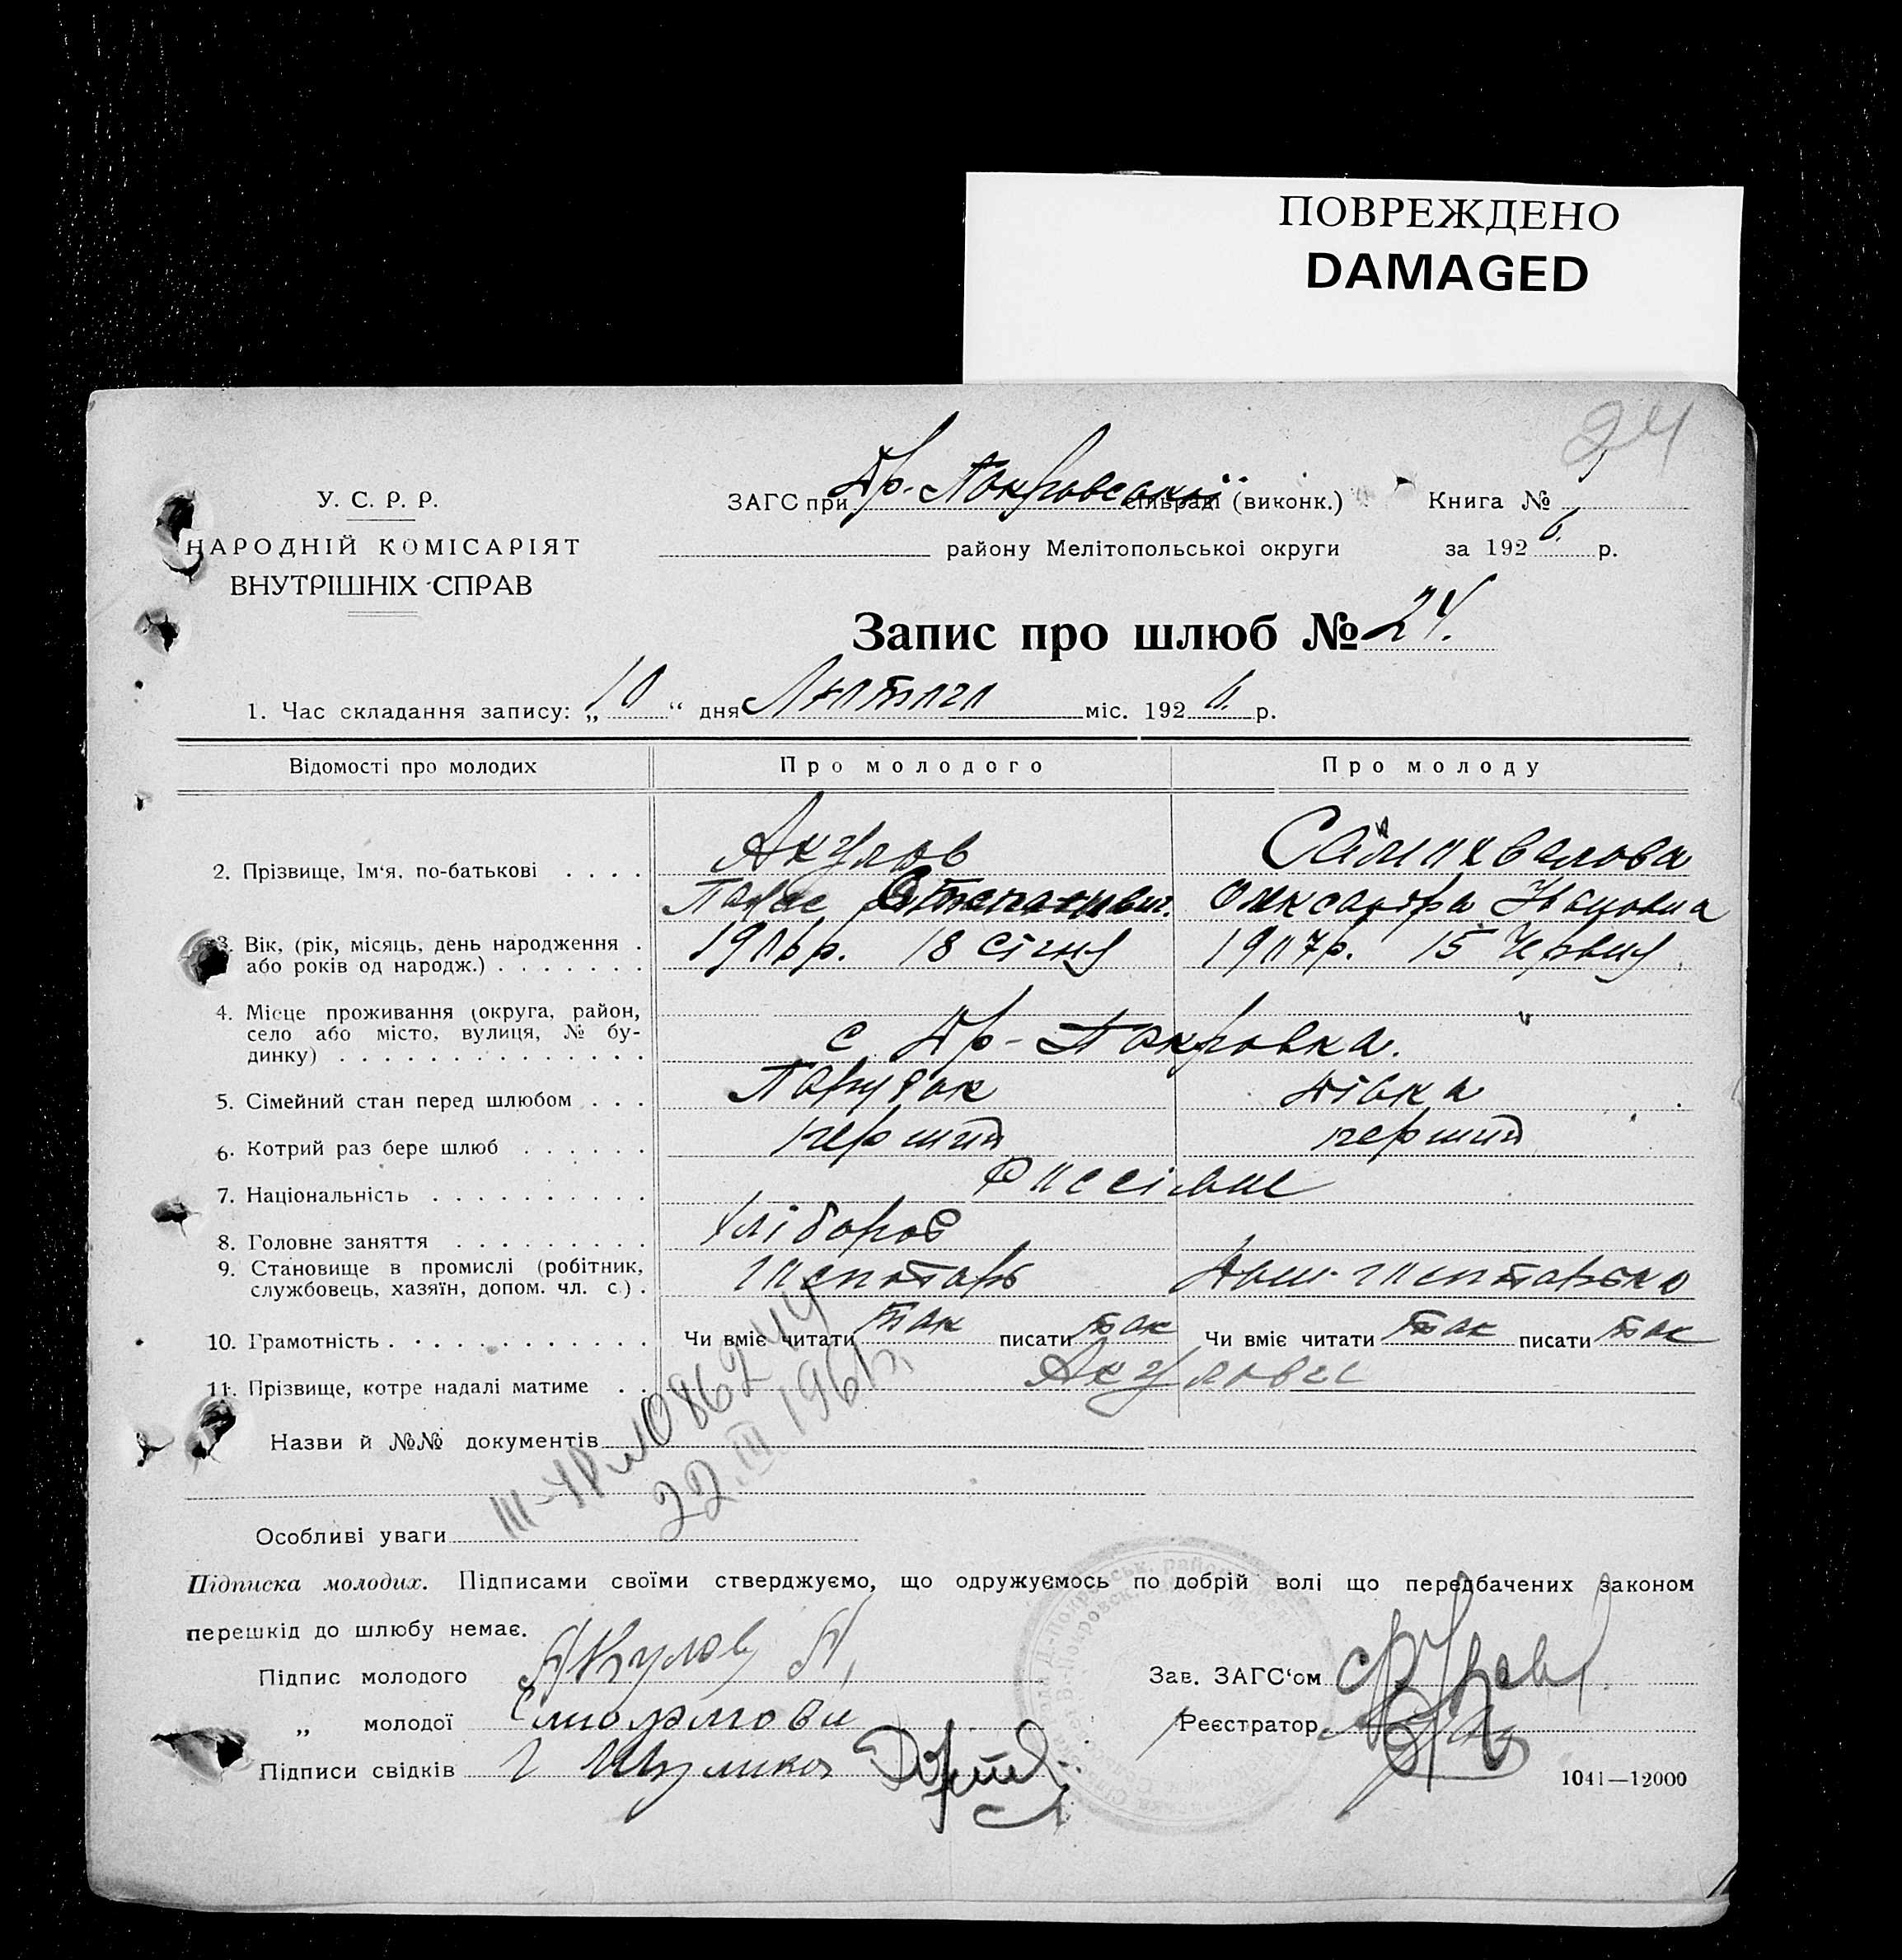 ПОВРЕЖДЕНО
DAMAGED
24
У. С. Р. Р.
НАРОДНІЙ КОМІСАРІЯТ
ВНУТРІШНІХ СПРАВ
ЗАГС при Др.-Покровської сільраді (виконк.) Книга №
району Мелітопольської округи за 1926 р.
Запис про шлюб № 24.
1. Час складання запису: „10“ дня Лютого міс. 1926. р.
Відомості про молодих Про молодого Про молоду
2. Прізвище, Ім‘я, по-батькові . . . . Акулов Самохвалова
Олександра Івановна
3. Вік, (рік, місяць, день народження . 1906р. 18 Січня 1907р. 15 Червня
або років од народж.) . . . . . . .
4. Місце проживання (округа, район,
село або місто, вулиця, № бу-
динку) . . . . . . . . . . . . . . с. Др-Покровка.
5. Сімейний стан перед шлюбом . . . Парубок Дівка
6. Котрий раз бере шлюб . . . . . . перший перший
7. Національність . . . . . . . . . .
8. Головне заняття . . . . . . . . . Хлібороб
9. Становище в промислі (робітник,
службовець, хазяїн, допом. чл. с.) .
10. Грамотність . . . . . . . . . . . Чи вміє читати так писати так Чи вміє читати так писати так
11. Прізвище, котре надалі матиме . . Акулови
Назви й №№ документів
22.III.1961р.
Особливі уваги
Підписка молодих. Підписами своїми стверджуємо, що одружуємось по добрій волі що передбачених законом
перешкід до шлюбу немає.
Підпис молодого Акулов Зав. ЗАГС‘ом
„ молодої Реєстратор
Підписи свідків
1041—12000